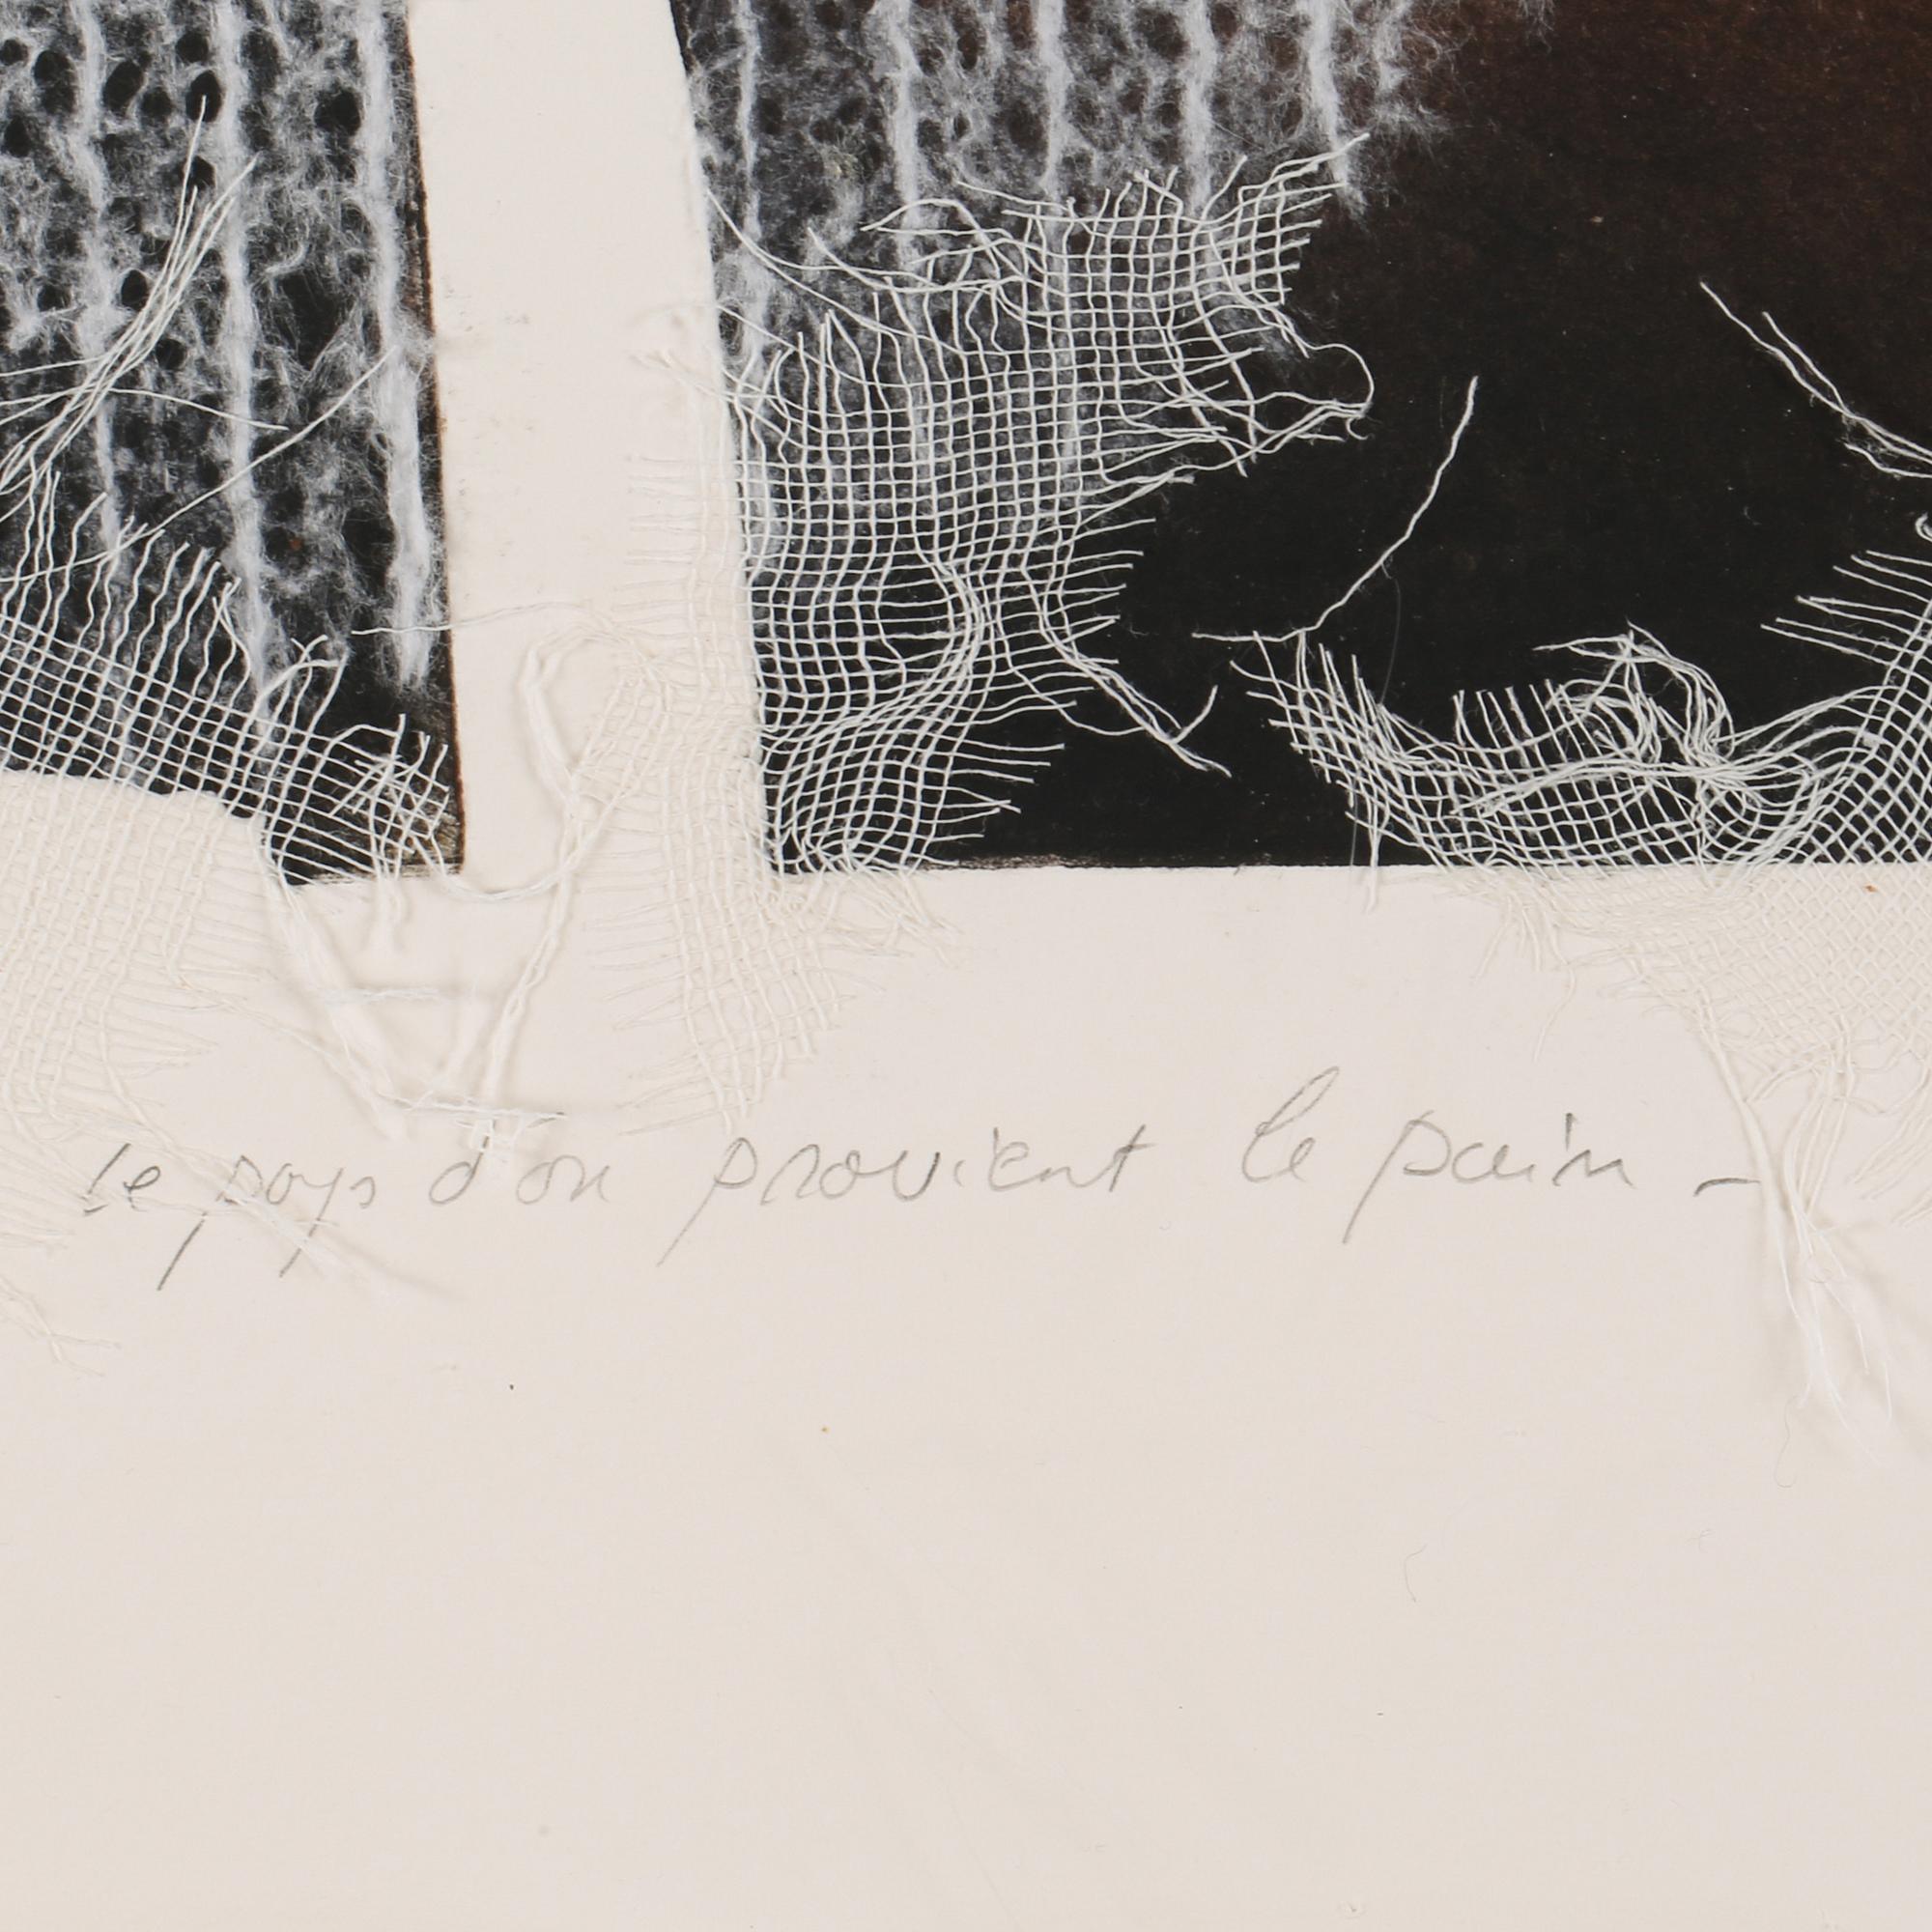 le pays d'ou provient le pain –